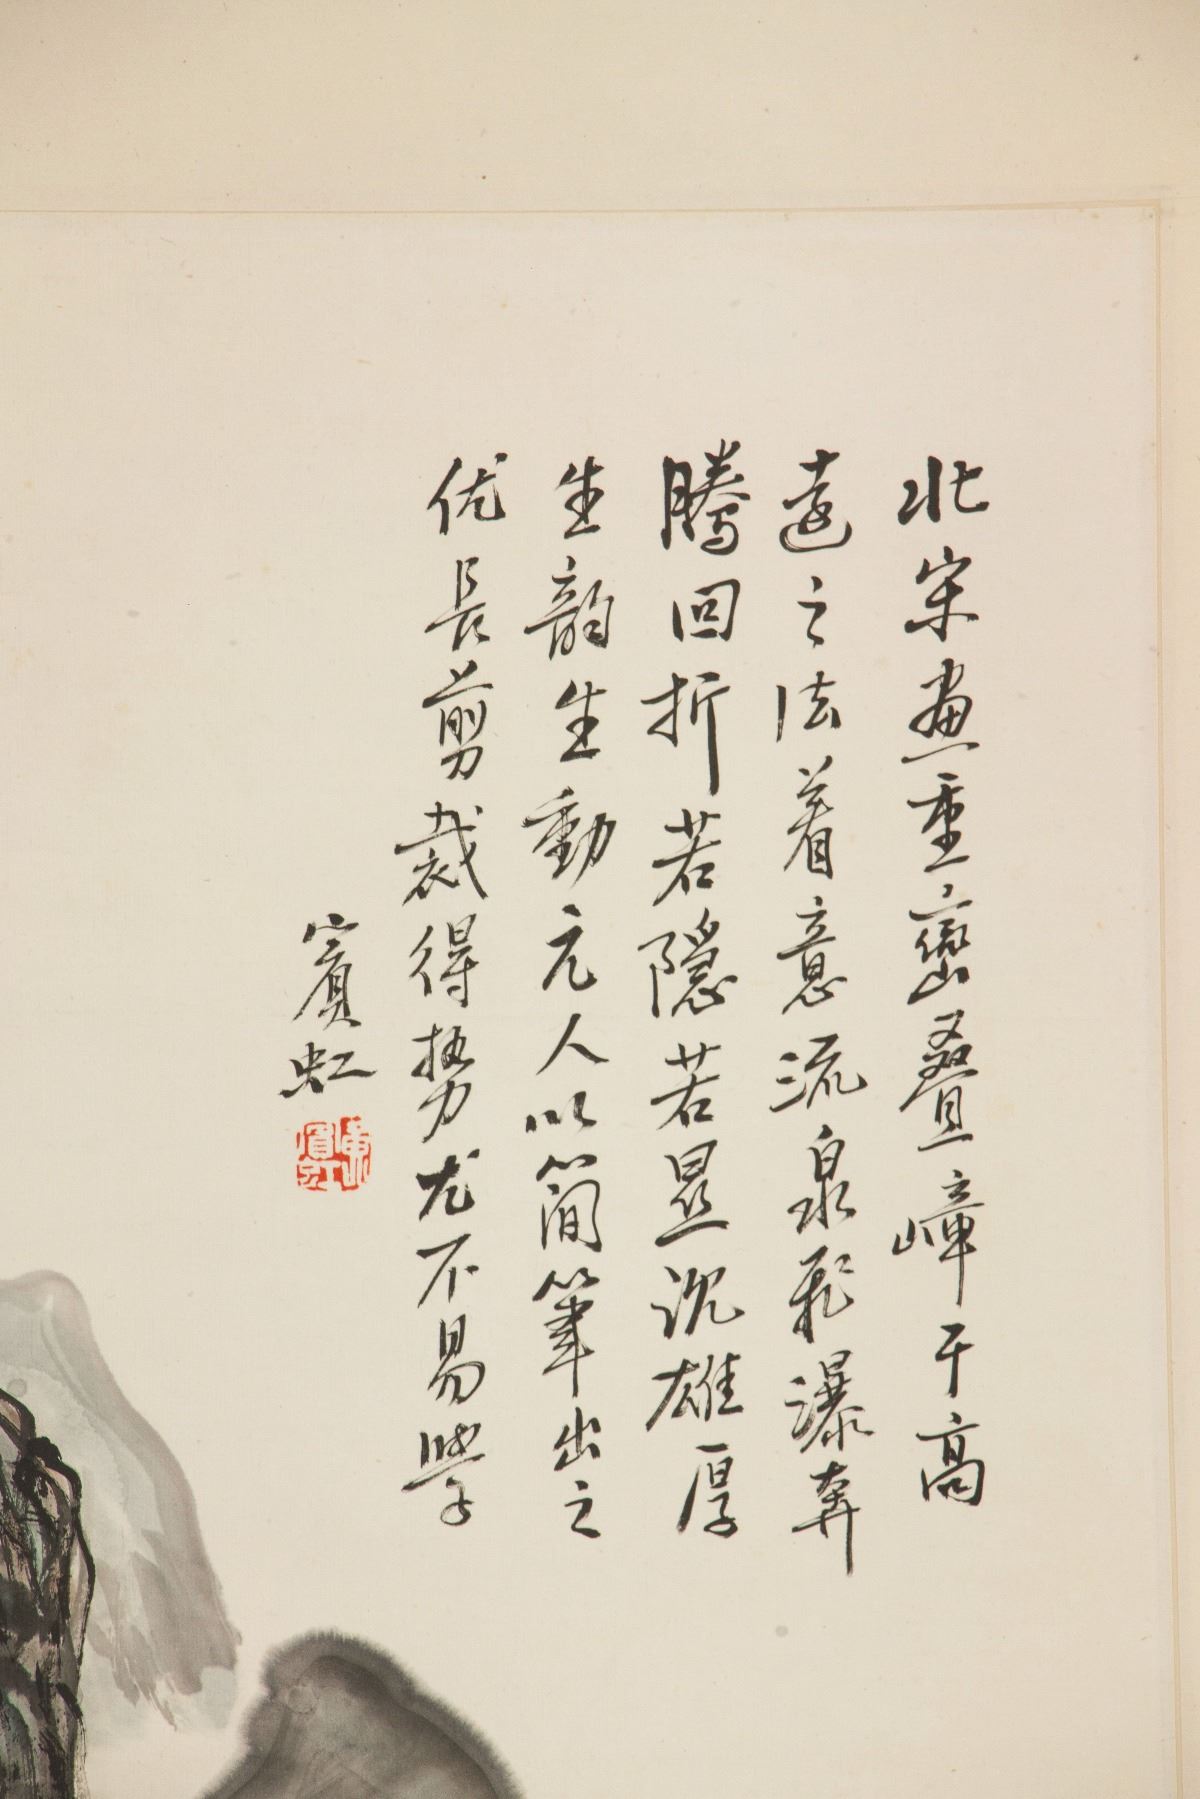 北宋畫重巒疊嶂千高
遠之法着意流泉飛瀑奔
騰回折若隱若显沉雄厚
生韵生動元人以简筆出之
优長剪裁得势尤不易學
賓虹